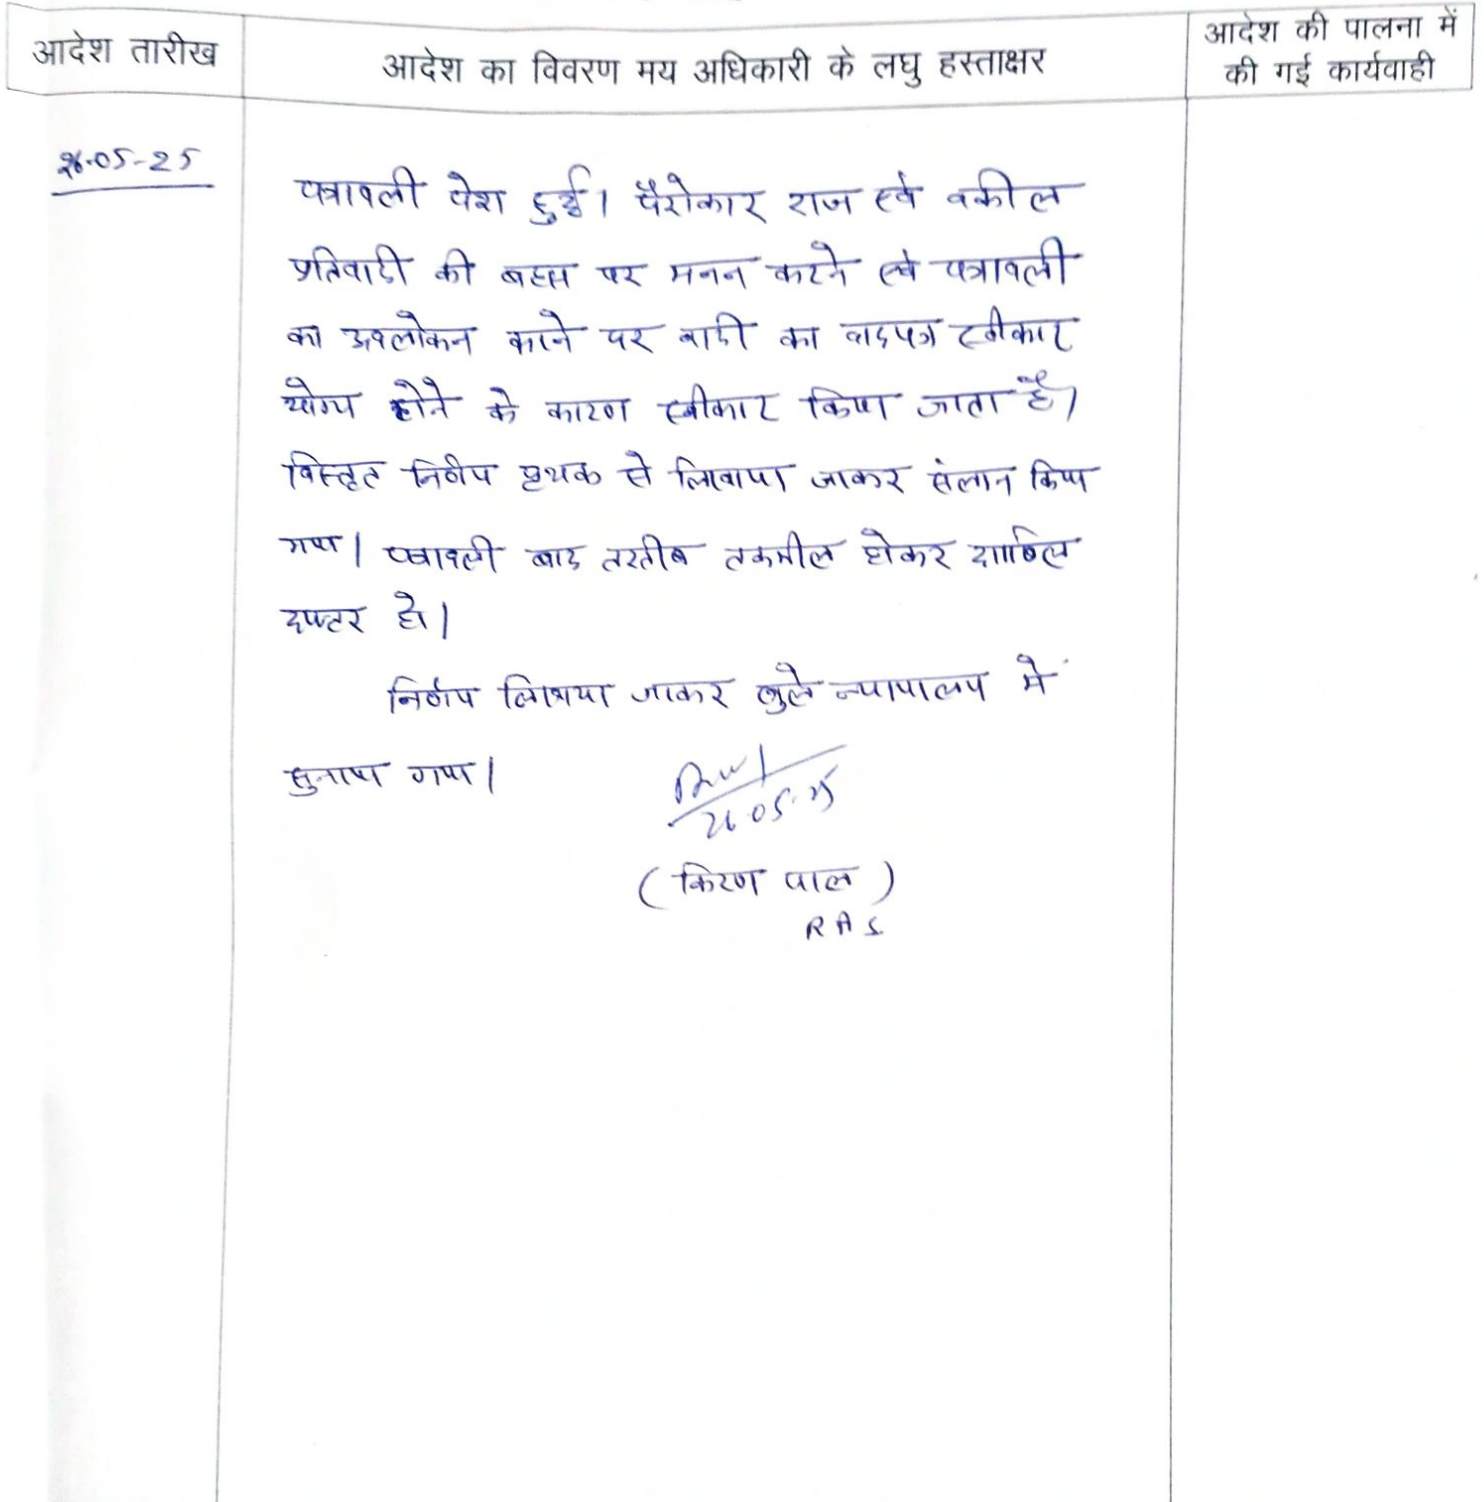 आदेश तारीख
आदेश का विवरण मय अधिकारी के लघु हस्ताक्षर
आदेश की पालना में
की गई कार्यवाही
26-05-25
पत्रावली पेश हुई। पैरोकार राज एवं वकील
प्रतिवादी की बहस पर मनन करने एवं पत्रावली
का अवलोकन करने पर वादी का वादपत्र स्वीकार
योग्य होने के कारण स्वीकार किया जाता है।
विस्तृत निर्णय पृथक से लिखाया जाकर संलग्न किया
गया। पत्रावली बाद तरतीब तकमील होकर दाखिल
दफ्तर हो।
निर्णय लिखाया जाकर खुले न्यायालय में
सुनाया गया।
26.05.25
(किरण पाल)
RAS